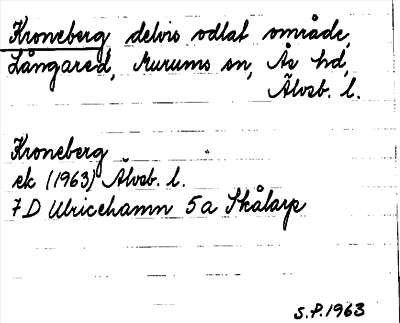 Kroneberg, delvis odlat område,
Långared, Murums sn, Ås hd,
Älvsb. l.
Kroneberg
ek (1963) Älvsb. l.
7D Ulricehamn 5a Skålarp
S.P. 1963